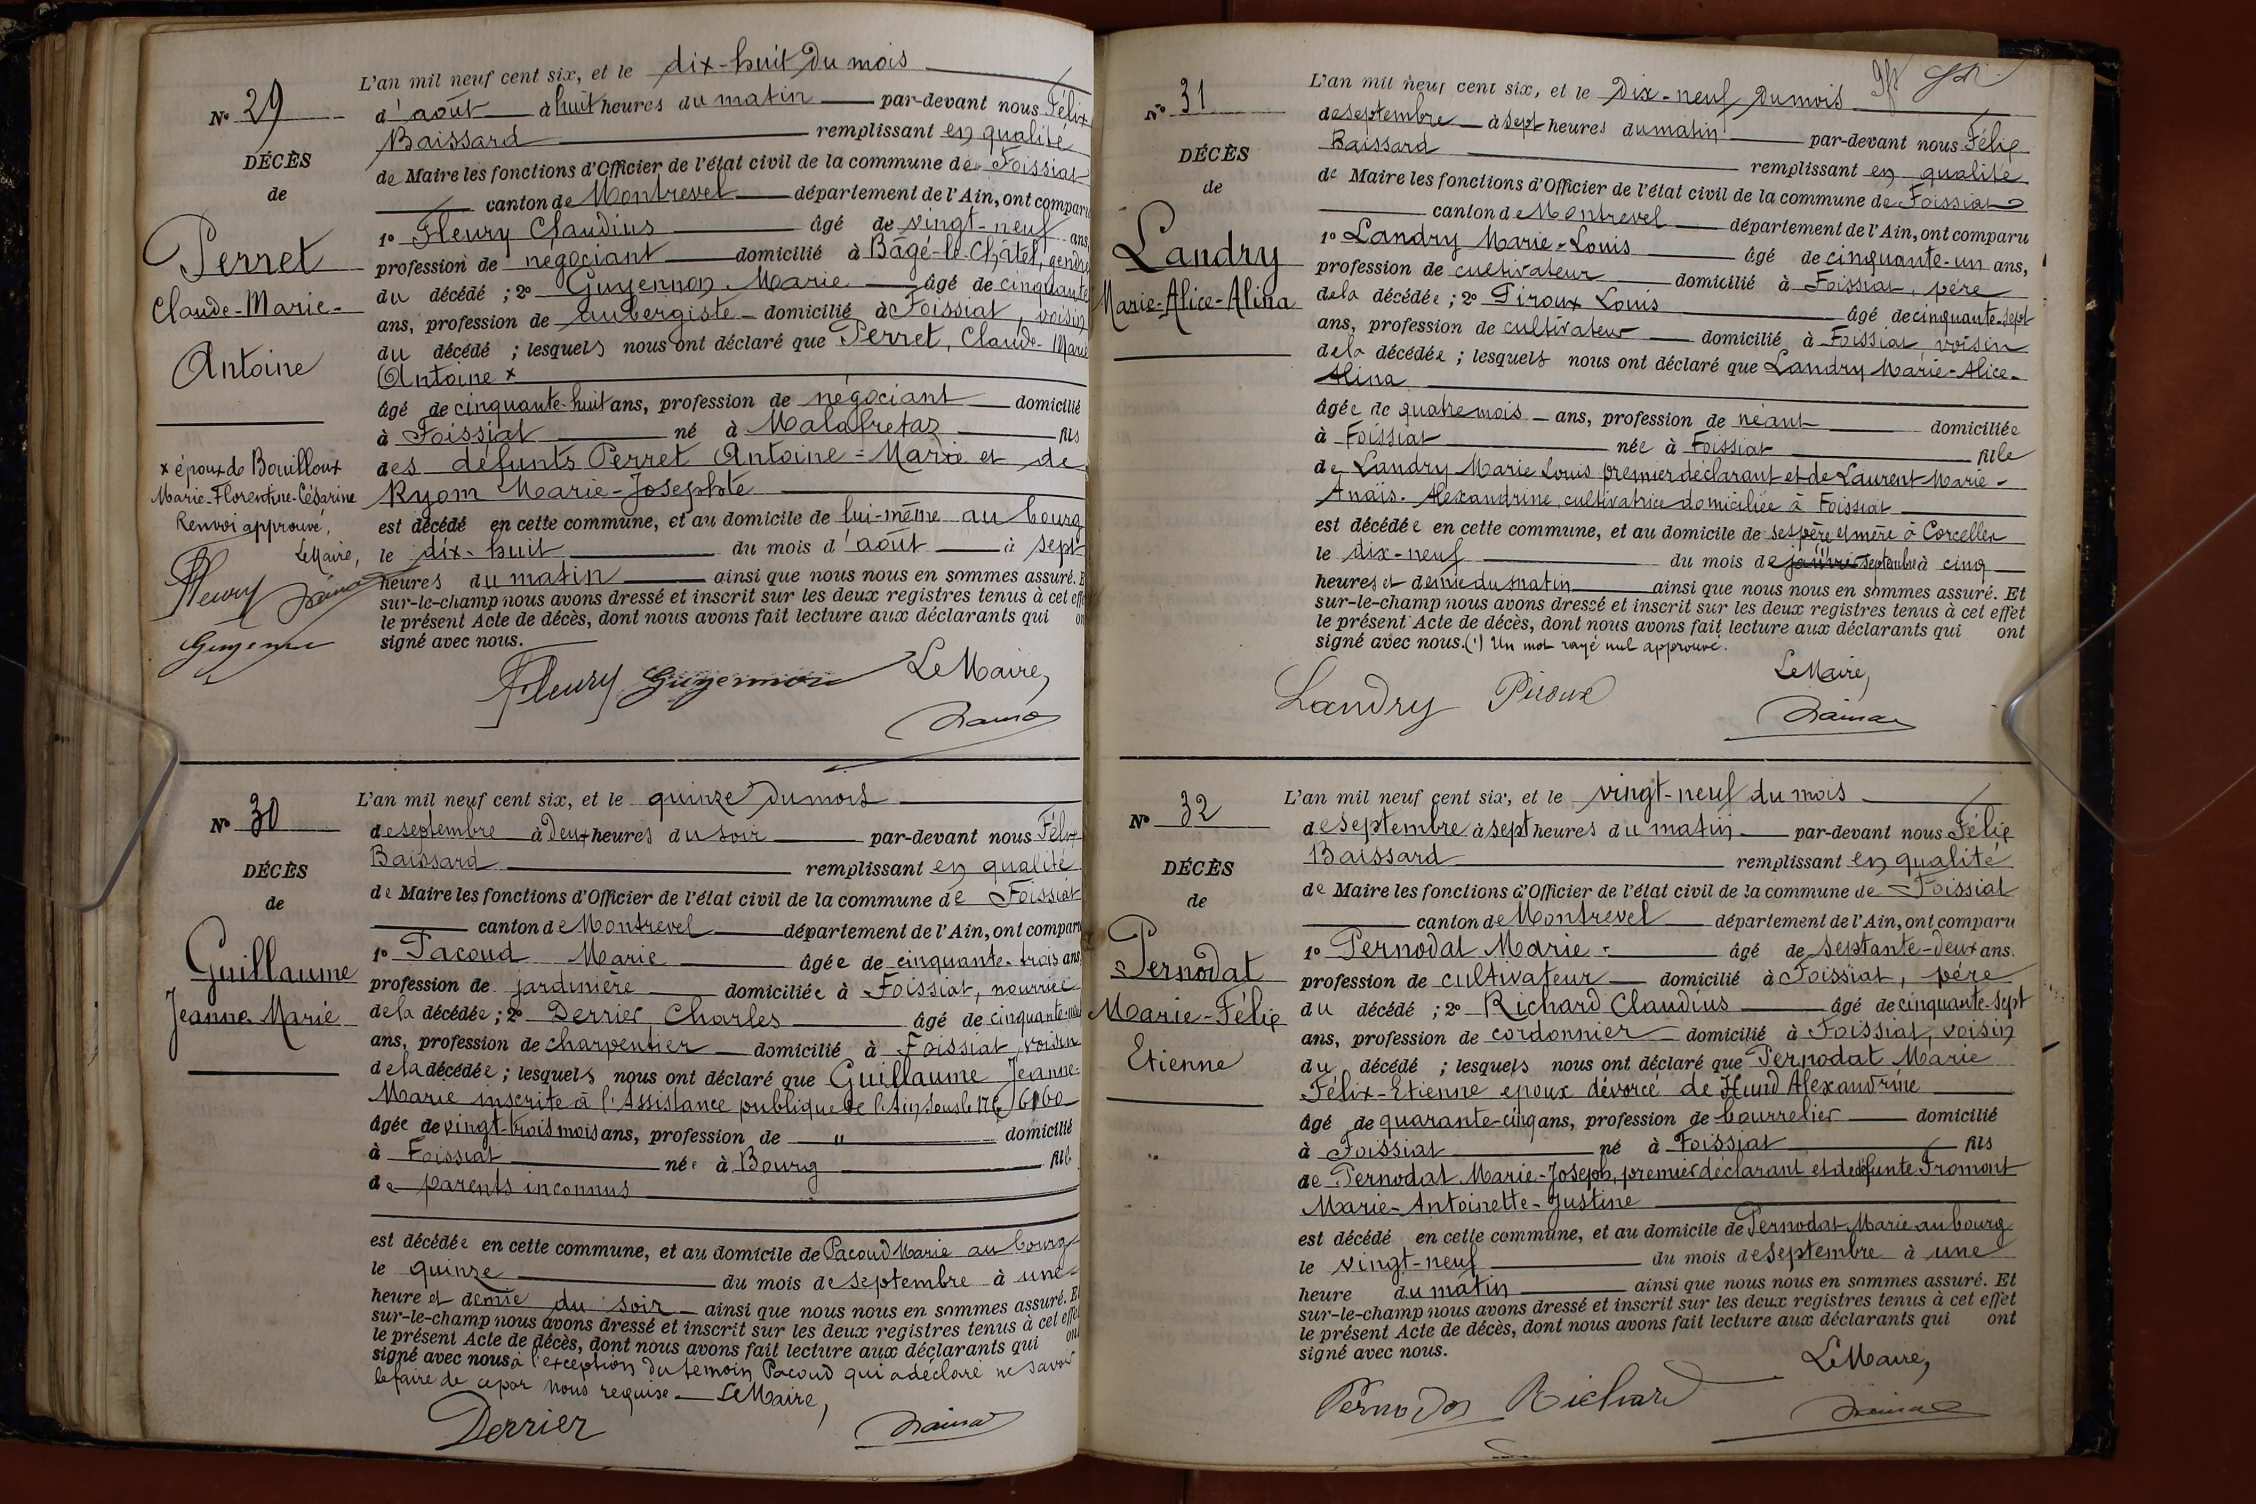 L'an mil neuf cent six, et le dix-huit du mois
N° 29
d'août à huit heures du matin par-devant nous Félix
Baissard remplissant en qualité
DÉCÈS
de Maire les fonctions d'Officier de l'état civil de la commune de Foissiat
de
canton de Montrevel département de l'Ain, ont comparu
1° Fleury Claudius âgé de vingt-neuf ans,
Perret
profession de négociant domicilié à Bâgé-le-Châtel, gendre
Claude-Marie-
du décédé ; 2° Guyennon Marie âgé de cinquante
ans, profession de aubergiste domicilié à Foissiat, voisin
Antoine
du décédé ; lesquels nous ont déclaré que Perret, Claude-Marie
Antoine x
âgé de cinquante-huit ans, profession de négociant domicilié
à Foissiat né à Malafretaz fils
x époux de Bouilloux
des défunts Perret Antoine-Marie et de
Marie-Florentine-Césarine
Ryom Marie-Josephte
Renvoi approuvé,
est décédé en cette commune, et au domicile de lui-même au bourg
Le Maire,
le dix-huit du mois d'août à sept
heures du matin ainsi que nous nous en sommes assuré. E
Fleury
sur-le-champ nous avons dressé et inscrit sur les deux registres tenus à cet effe
le présent Acte de décès, dont nous avons fait lecture aux déclarants qui on
Guyennon
signé avec nous.
Fleury Guyennon Le Maire,
L'an mil neuf cent six, et le quinze du mois
N° 30
de septembre à deux heures du soir par-devant nous Félix
Baissard remplissant en qualité
DÉCÈS
de Maire les fonctions d'Officier de l'état civil de la commune de Foissiat
de
canton de Montrevel département de l'Ain, ont comparu
1° Pacoud Marie âgée de cinquante-trois ans,
Guillaume
profession de jardinière domiciliée à Foissiat, nourrice
Jeanne-Marie
de la décédée ; 2° Derrier Charles âgé de cinquante-
ans, profession de charpentier domicilié à Foissiat, voisin
de la décédée ; lesquels nous ont déclaré que Guillaume Jeanne-
Marie inscrite à l'Assistance publique de l'Ain sous le
âgée de vingt-trois mois ans, profession de " domicilié
à Foissiat née à Bourg fille
de parents inconnus
est décédée en cette commune, et au domicile de Pacoud Marie au bourg
le quinze du mois de septembre à une
heure et demie du soir ainsi que nous nous en sommes assuré. E
sur-le-champ nous avons dressé et inscrit sur les deux registres tenus à cet effet
le présent Acte de décès, dont nous avons fait lecture aux déclarants qui ont
signé avec nous à l'exception du témoin Pacoud qui a déclaré ne savoir
le faire de ce par nous requise Le Maire,
Derrier
L'an mil neuf cent six, et le dix-neuf du mois
N° 31
de septembre à sept heures du matin par-devant nous Félix
Baissard remplissant en qualité
DÉCÈS
de Maire les fonctions d'Officier de l'état civil de la commune de Foissiat
de
canton de Montrevel département de l'Ain, ont comparu
1° Landry Marie-Louis âgé de cinquante-un ans,
Landry
profession de cultivateur domicilié à Foissiat, père
Marie-Alice-Alina
de la décédée ; 2° Piroux Louis âgé de cinquante-sept
ans, profession de cultivateur domicilié à Foissiat, voisin
de la décédée ; lesquels nous ont déclaré que Landry Marie-Alice-
Alina
âgée de quatre mois ans, profession de néant domiciliée
à Foissiat née à Foissiat fille
de Landry Marie Louis premier déclarant et de Laurent Marie-
Anaïs-Alexandrine, cultivatrice domiciliée à Foissiat
est décédée en cette commune, et au domicile de ses père et mère à Corcelles
le dix-neuf du mois de septembre à cinq
heures et demie du matin ainsi que nous nous en sommes assuré. Et
sur-le-champ nous avons dressé et inscrit sur les deux registres tenus à cet effet
le présent Acte de décès, dont nous avons fait lecture aux déclarants qui ont
signé avec nous. (1) Un mot rayé nul approuvé.
Le Maire,
Landry Piroux
L'an mil neuf cent six, et le vingt-neuf du mois
N° 32
de septembre à sept heures du matin par-devant nous Félix
Baissard remplissant en qualité
DÉCÈS
de Maire les fonctions d'Officier de l'état civil de la commune de Foissiat
de
canton de Montrevel département de l'Ain, ont comparu
1° Pernodat Marie âgé de septante-deux ans.
Pernodat
profession de cultivateur domicilié à Foissiat, père
Marie-Félix
du décédé ; 2° Richard Claudius âgé de cinquante-sept
ans, profession de cordonnier domicilié à Foissiat, voisin
Etienne
du décédé ; lesquels nous ont déclaré que Pernodat Marie
Félix-Etienne epoux dévorcé de Alexandrine
âgé de quarante-cinq ans, profession de bourrelier domicilié
à Foissiat né à Foissiat fils
de Pernodat Marie-Joseph, premier déclarant et de défunte Fromont
Marie-Antoinette-Justine
est décédé en cette commune, et au domicile de Pernodat Marie au bourg
le vingt-neuf du mois de septembre à une
heure du matin ainsi que nous nous en sommes assuré. Et
sur-le-champ nous avons dressé et inscrit sur les deux registres tenus à cet effet
le présent Acte de décès, dont nous avons fait lecture aux déclarants qui ont
signé avec nous.
Le Maire,
Pernodat Richard